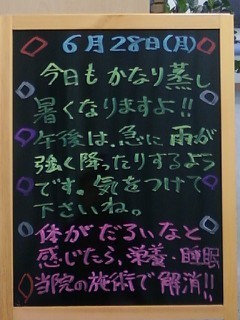 6月28日(月)
今日もかなり蒸し
暑くなりますよ!!
午後は、急に雨が
強く降ったりするよう
です。気をつけて
下さいね。
体がだるいなと
感じたら、栄養・睡眠
当院の施術で解消!!